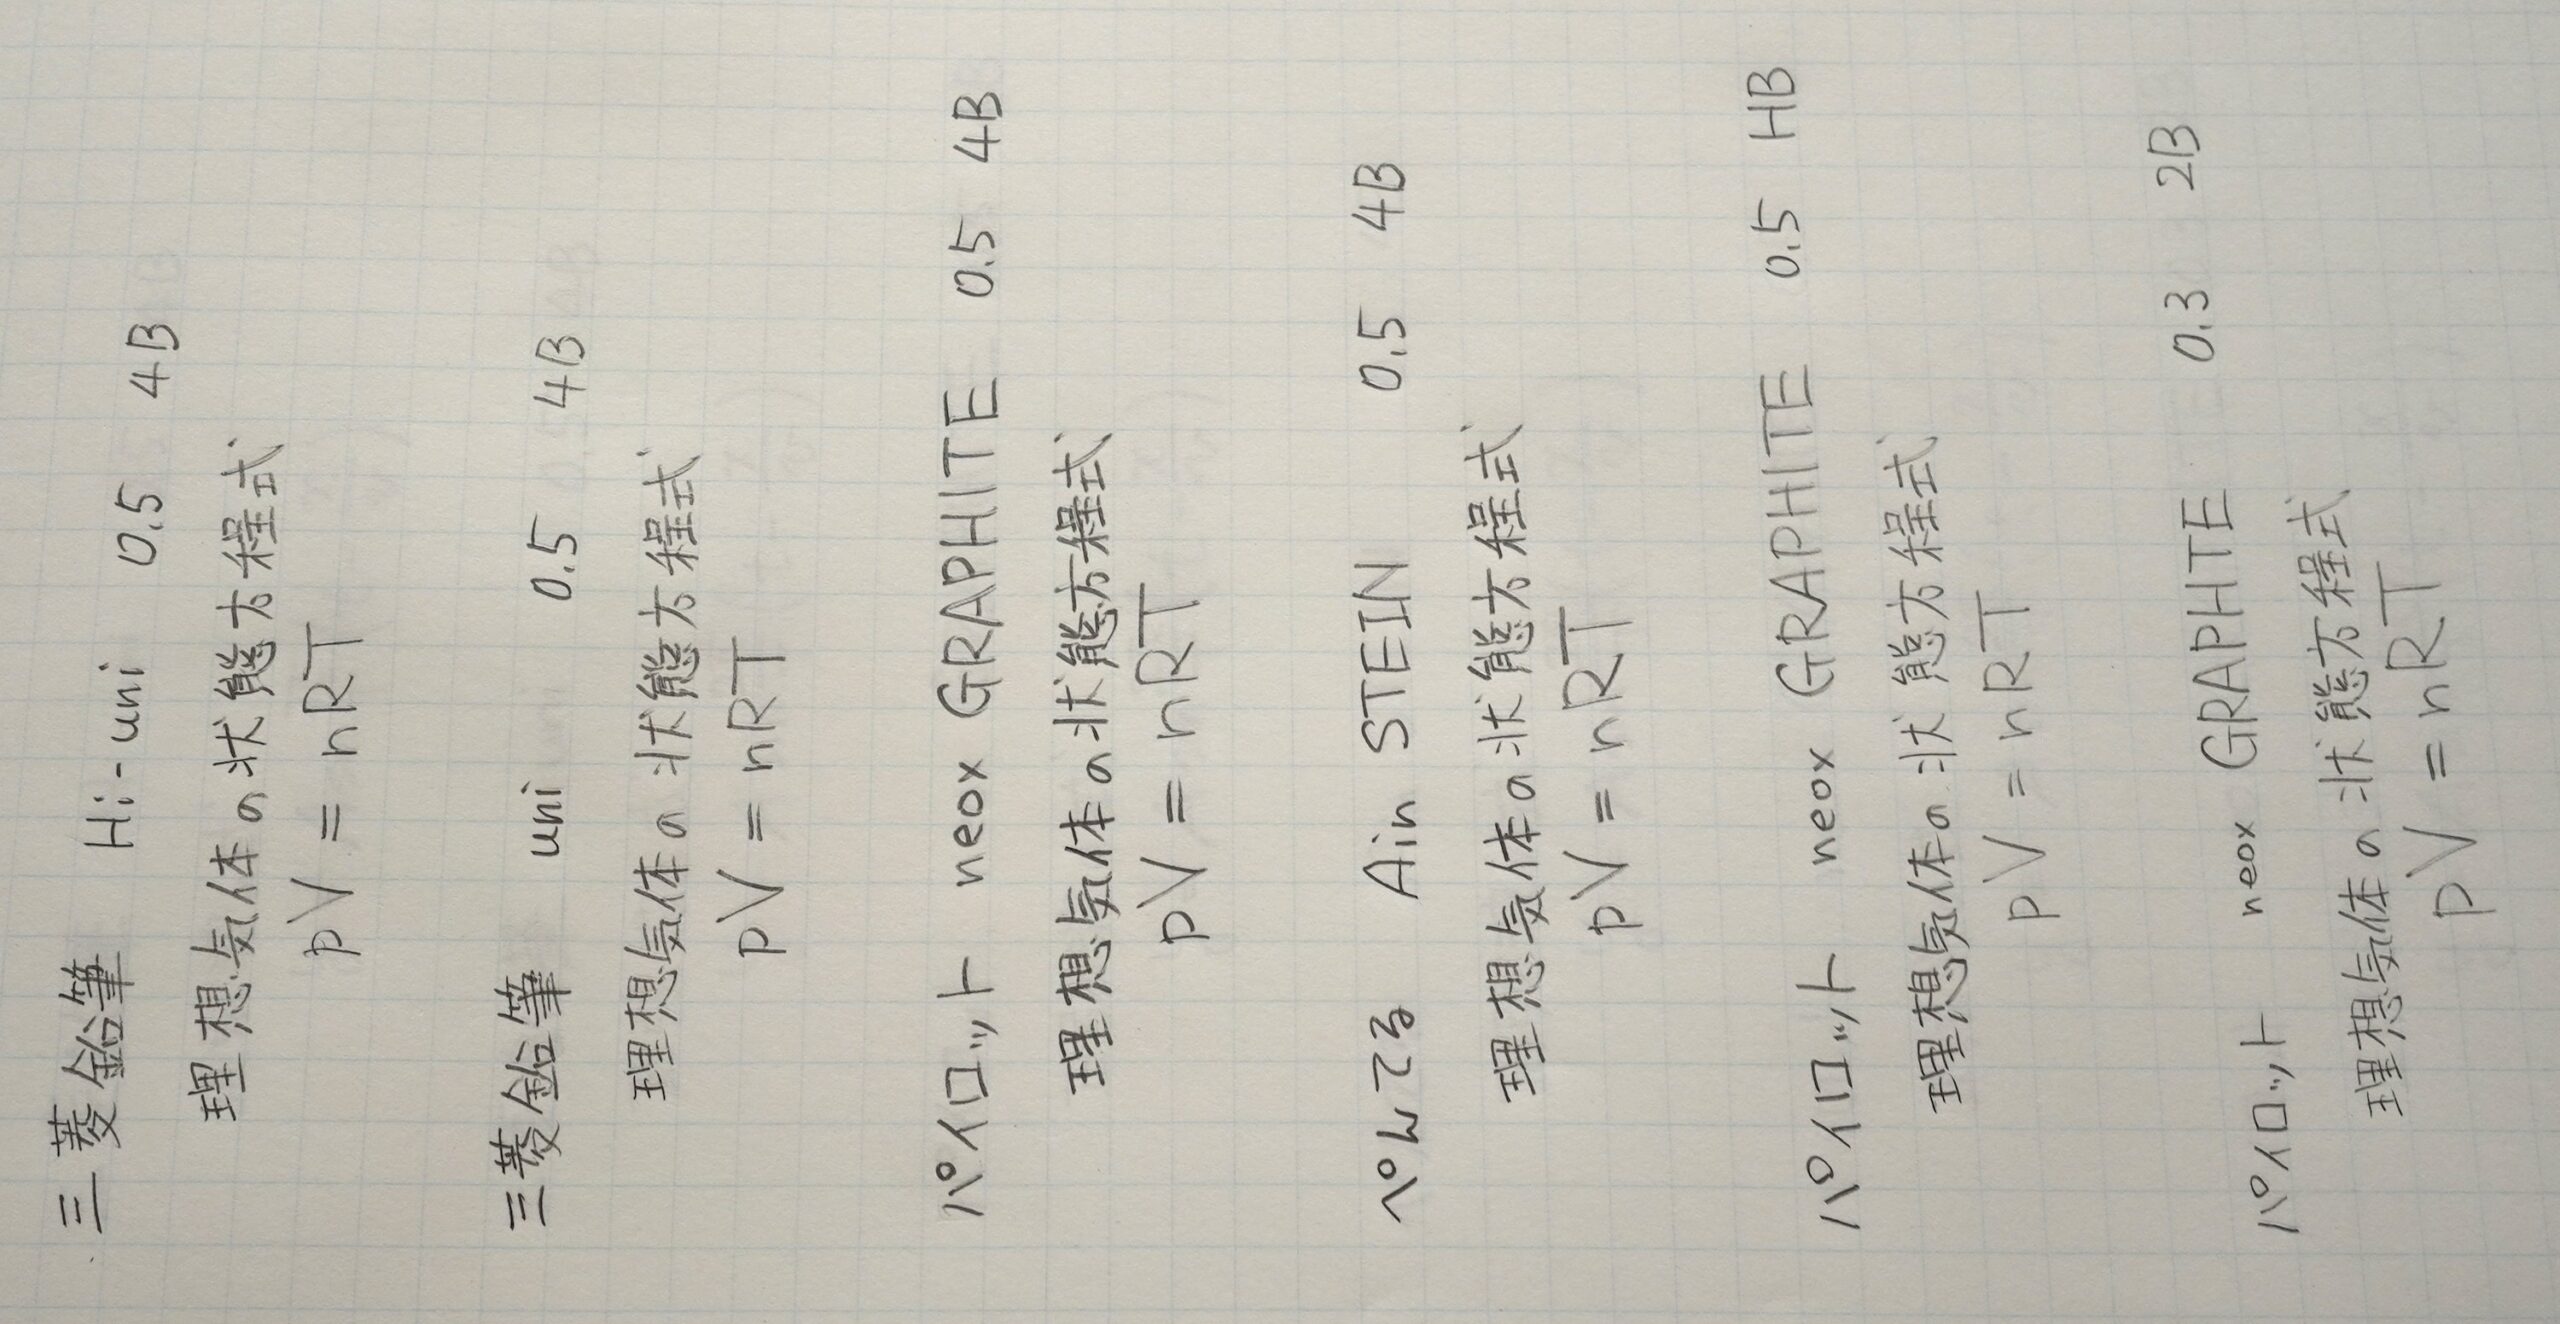 三菱鉛筆 Hi-uni 0.5 4B
理想気体の状態方程式
pV = nRT
三菱鉛筆 uni 0.5 4B
理想気体の状態方程式
pV = nRT
パイロット neox GRAPHITE 0.5 4B
理想気体の状態方程式
pV = nRT
ぺんてる Ain STEIN 0.5 4B
理想気体の状態方程式
pV = nRT
パイロット neox GRAPHITE 0.5 HB
理想気体の状態方程式
pV = nRT
パイロット neox GRAPHTE 0.3 2B
理想気体の状態方程式
pV = nRT